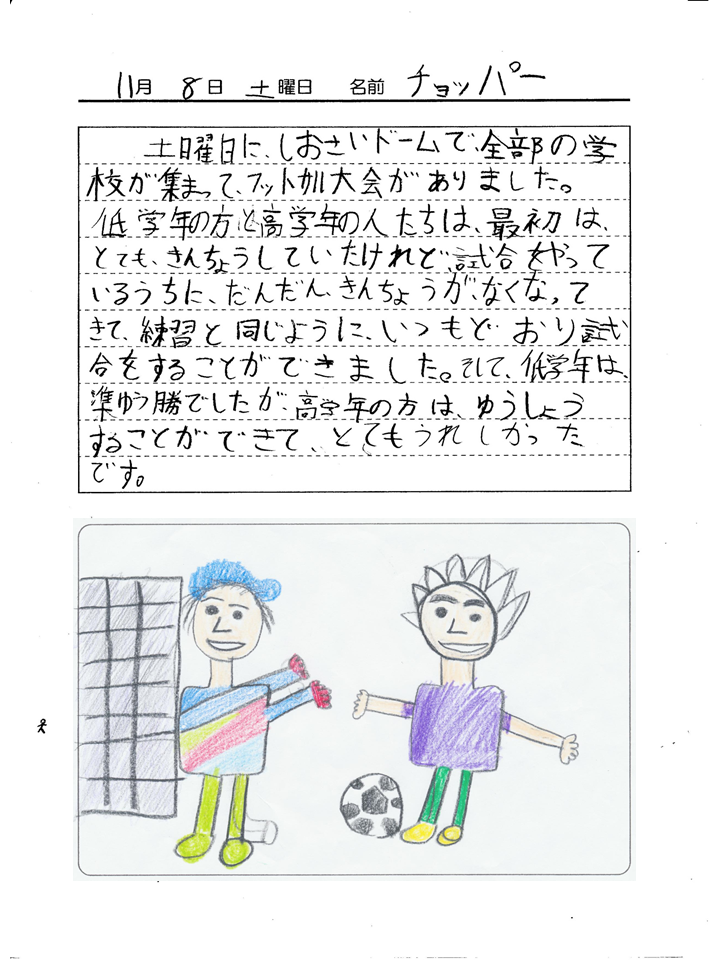 11月 8日 土曜日 名前 チョッパー
土曜日に、しおさいドームで、全部の学
校が集まって、フットサル大会がありました。
低学年の方と高学年の人たちは、最初は、
とても、きんちょうしていたけれど、試合をやって
いるうちに、だんだん、きんちょうが、なくなって
きて、練習と同じように、いつもどおり試
合をすることができました。そして、低学年は、
準ゆう勝でしたが、高学年の方は、ゆうしょう
することができて、とてもうれしかった
です。